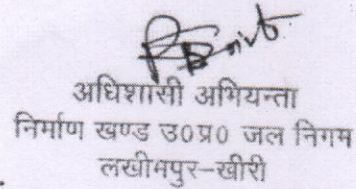 अधिशासी अभियन्ता
निर्माण खण्ड उ0प्र0 जल निगम
लखीमपुर-खीरी